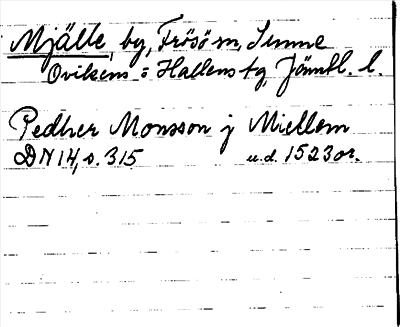 Mjälle, by, Frösö sn, Sunne
Ovikens o Hallens tg, Jämtl. l.
Pedher Monsson j Miellem
DN 14, s. 315 u.d. 1523 or.